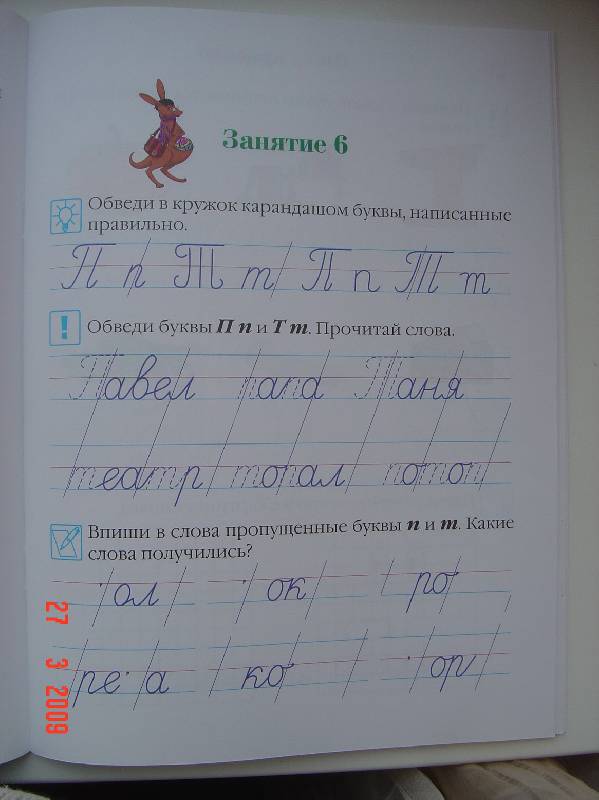 Занятие 6
Обведи в кружок карандашом буквы, написанные
правильно.
П п Т т П п Т т
Обведи буквы П п и Т т. Прочитай слова.
Павел папа Таня
театр топал потоп
Впиши в слова пропущенные буквы п и т. Какие
слова получились?
ол ок ро
ре а ко ор
27 3 2009